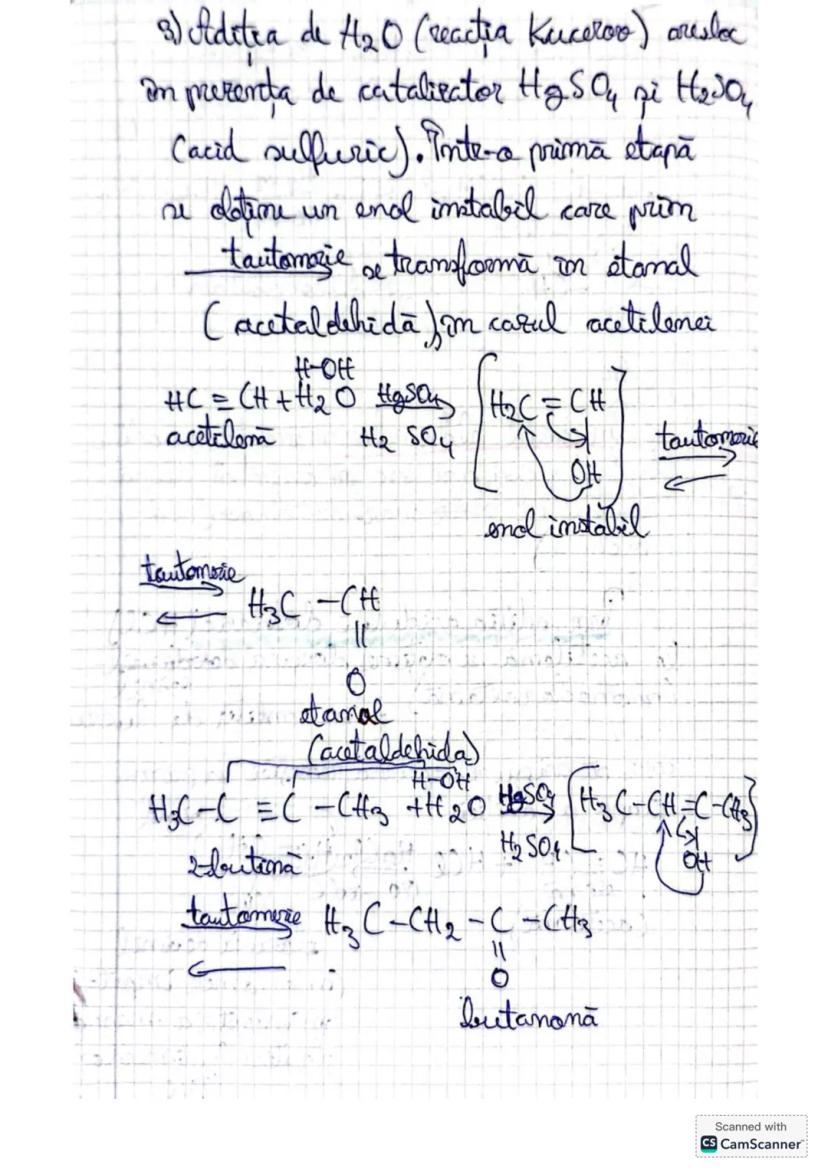 3) Adiția de H2O (reacția Kucerov) are loc
în prezența de catalizator HgSO4 și H2SO4
(acid sulfuric). Într-o primă etapă
se obține un enol instabil care prin
tautomerie se transformă în etanal
(acetaldehidă), în cazul acetilenei
H-OH
HC ≡ CH + H2O HgSO4 [H2C = CH]
acetilenă H2SO4 OH tautomerie
enol instabil
tautomerie H3C - CH
||
O
etanal
(acetaldehida)
H-OH
H3C-C ≡ C-CH3 + H2O HgSO4 [H3C-CH=C-CH3]
2-butină H2SO4 OH
tautomerie H3C-CH2-C-CH3
||
O
butanonă
Scanned with
CS CamScanner